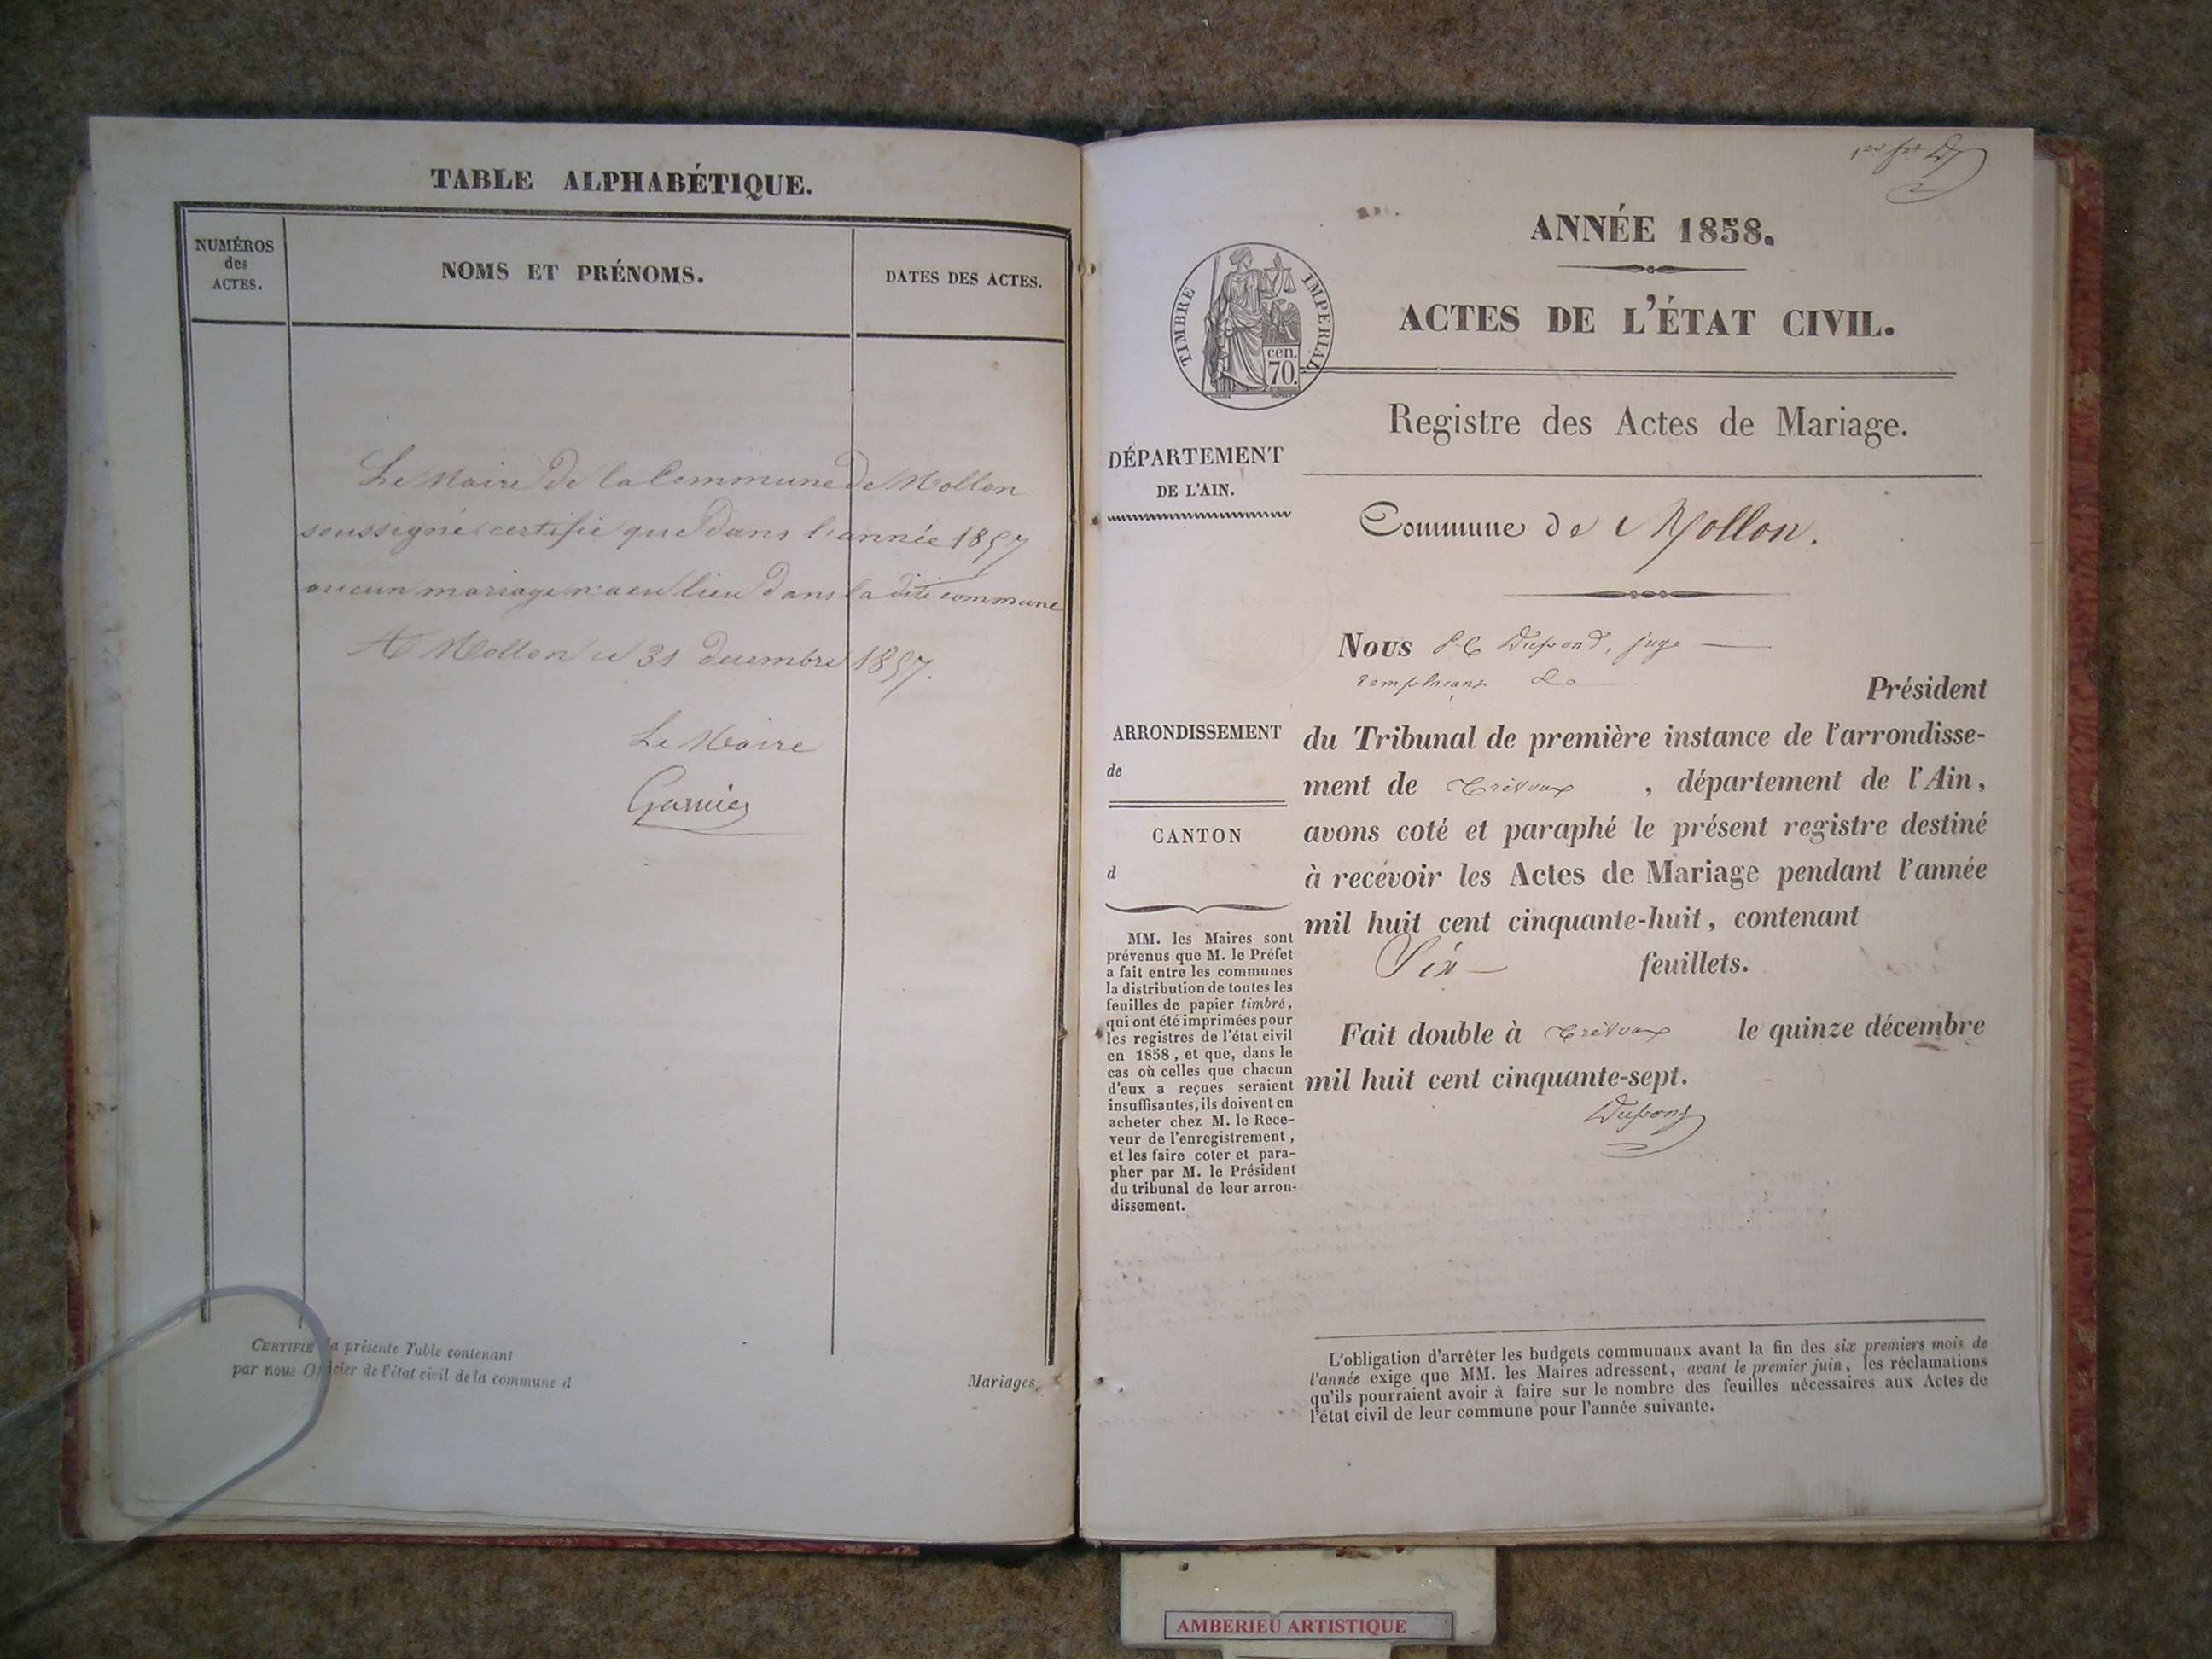 TABLE ALPHABÉTIQUE.
NUMÉROS
des
ACTES.
NOMS ET PRÉNOMS.
DATES DES ACTES.
Le Maire de la Commune de Mollon
soussigné certifie que dans l'année 1857
aucun mariage n'a eu lieu dans la dite commune
A Mollon le 31 decembre 1857.
Le Maire
Garnier
CERTIFIÉ la présente Table contenant
Mariages,
par nous Officier de l'état civil de la commune d
ANNÉE 1858.
TIMBRE IMPERIAL
cen.
70.
ACTES DE L'ÉTAT CIVIL.
Registre des Actes de Mariage.
DÉPARTEMENT
DE L'AIN.
Commune de Mollon.
ARRONDISSEMENT
de
CANTON
d
MM. les Maires sont
prévenus que M. le Préfet
a fait entre les communes
la distribution de toutes les
feuilles de papier timbré,
qui ont été imprimées pour
les registres de l'état civil
en 1858, et que, dans le
cas où celles que chacun
d'eux a reçues seraient
insuffisantes, ils doivent en
acheter chez M. le Rece-
veur de l'enregistrement,
et les faire coter et para-
pher par M. le Président
du tribunal de leur arron-
dissement.
Nous Dupond, juge
remplaçant le Président
du Tribunal de première instance de l'arrondisse-
ment de Trévoux, département de l'Ain,
avons coté et paraphé le présent registre destiné
à recévoir les Actes de Mariage pendant l'année
mil huit cent cinquante-huit, contenant
Six feuillets.
Fait double à Trévoux le quinze décembre
mil huit cent cinquante-sept.
Dupond
L'obligation d'arrêter les budgets communaux avant la fin des six premiers mois de
l'année exige que MM. les Maires adressent, avant le premier juin, les réclamations
qu'ils pourraient avoir à faire sur le nombre des feuilles nécessaires aux Actes de
l'état civil de leur commune pour l'année suivante.
AMBERIEU ARTISTIQUE